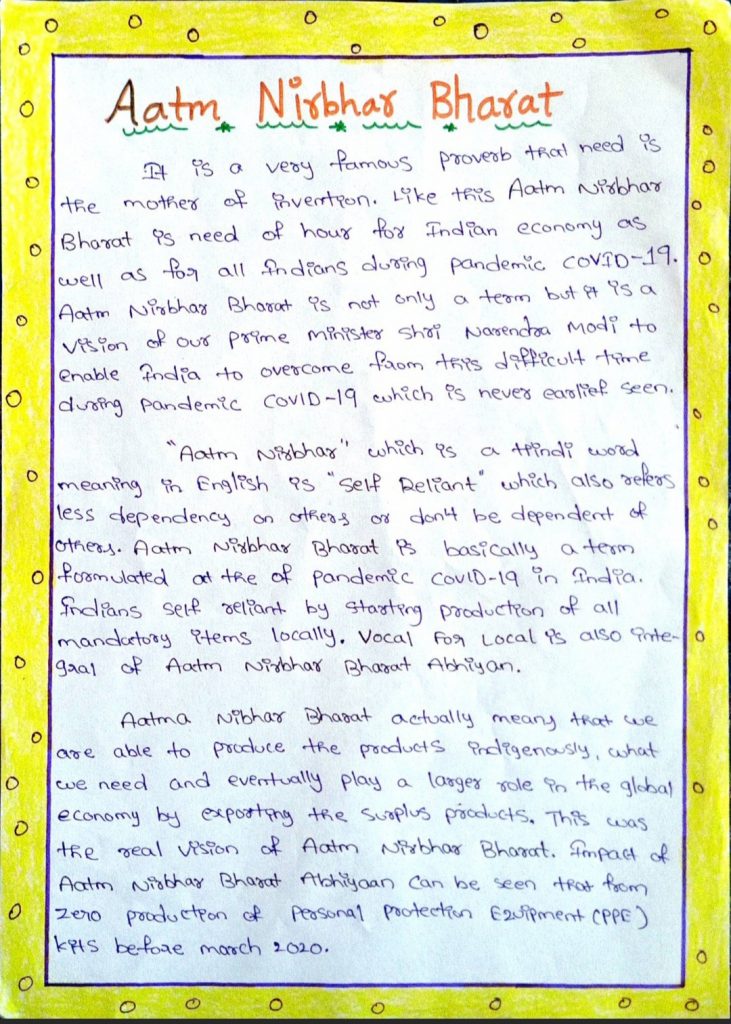 Aatm Nirbhar Bharat
It is a very famous proverb that need is
the mother of invention. Like this Aatm Nirbhar
Bharat is need of hour for Indian economy as
well as for all Indians during pandemic COVID-19.
Aatm Nirbhar Bharat is not only a term but it is a
vision of our prime minister shri Narendra Modi to
enable India to overcome from this difficult time
during pandemic COVID-19 which is never earlier seen.
"Aatm Nirbhar" which is a Hindi word
meaning in English is "Self Reliant" which also refers
less dependency on others or don't be dependent of
others. Aatm Nirbhar Bharat is basically a term
formulated at the of pandemic COVID-19 in India.
Indians self reliant by starting production of all
mandatory items locally. Vocal For Local is also inte-
gral of Aatm Nirbhar Bharat Abhiyan.
Aatma Nibhar Bharat actually means that we
are able to produce the products indigenously, what
we need and eventually play a larger role in the global
economy by exporting the surplus products. This was
the real vision of Aatm Nirbhar Bharat. Impact of
Aatm Nirbhar Bharat Abhiyaan can be seen that from
zero production of Personal protection Equipment (PPE)
kits before march 2020.